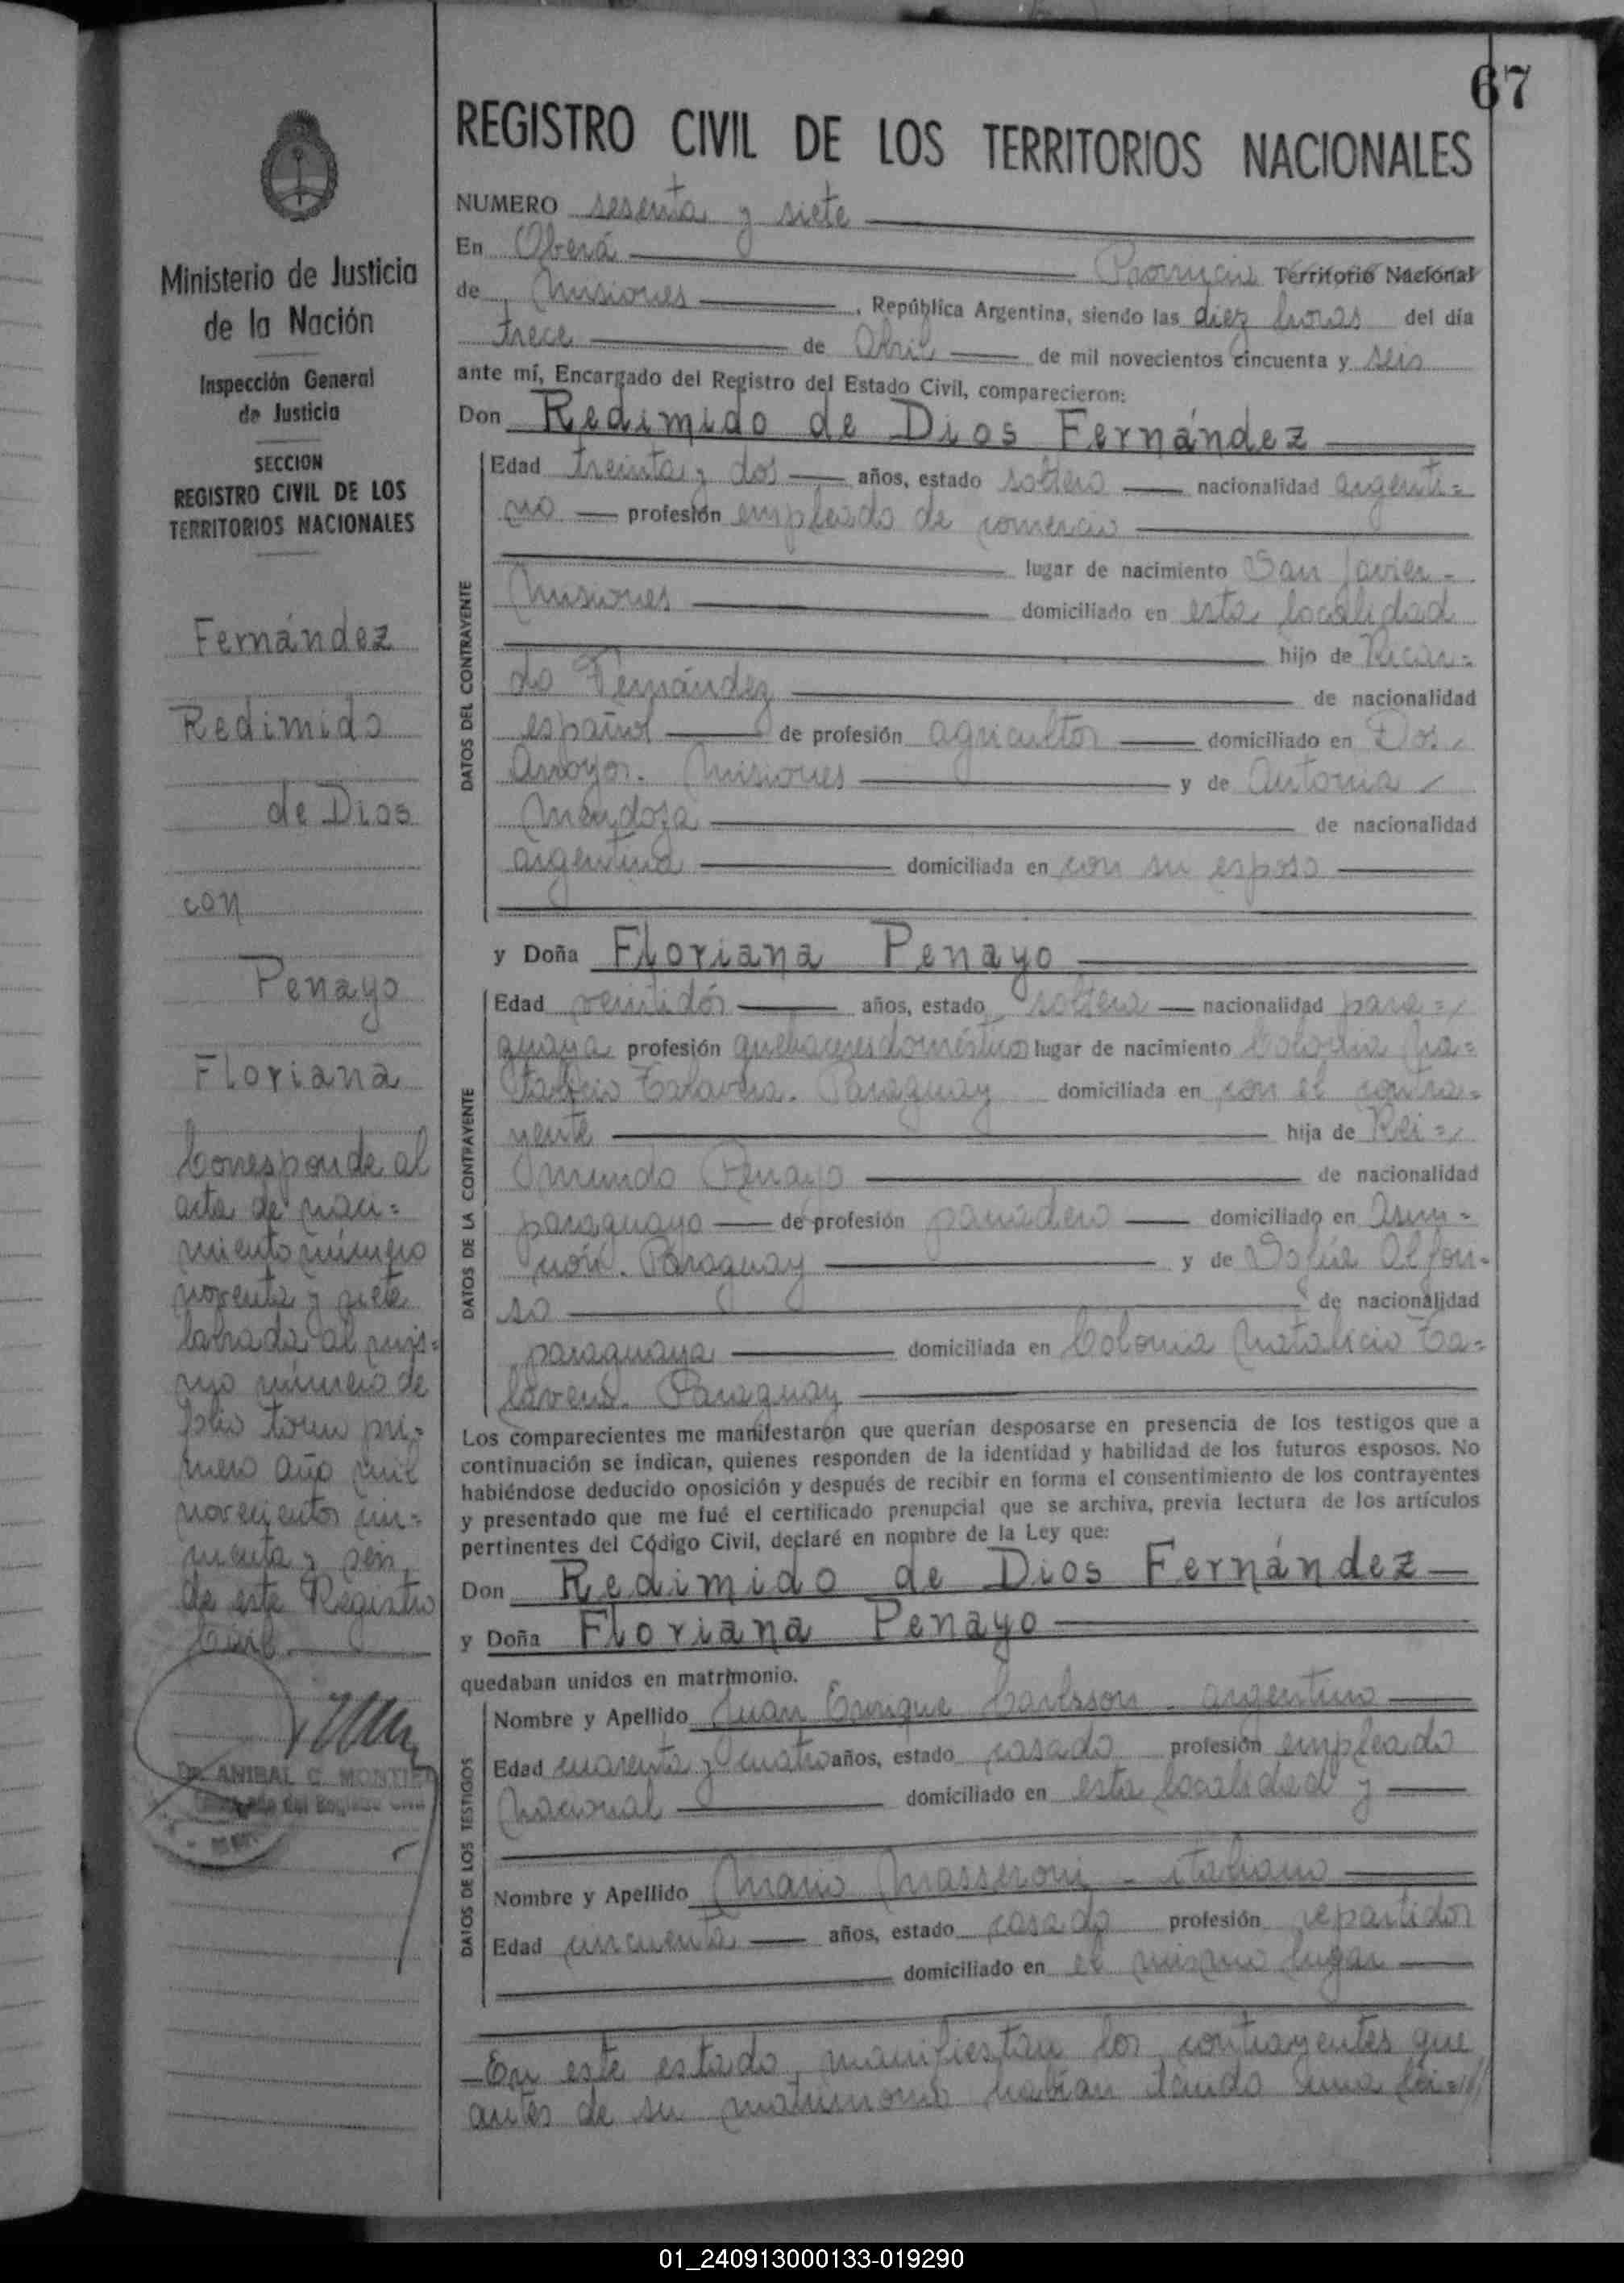 67
REGISTRO CIVIL DE LOS TERRITORIOS NACIONALES
Ministerio de Justicia
de la Nación
Inspección General
de Justicia
SECCION
REGISTRO CIVIL DE LOS
TERRITORIOS NACIONALES
Fernández
Redimido
de Dios
con
Penayo
Floriana
Corresponde al
acta de naci=
miento número
noventa y siete
labrada al mis=
mo número de
folio tomo pri=
mero año mil
novecientos cin=
cuenta y seis
de este Registro
Civil.
Dr. ANIBAL C. MONTIEL
NUMERO sesenta y siete
En Oberá Provincia Territorio Nacional
de Misiones, República Argentina, siendo las diez horas del día
trece de Abril de mil novecientos cincuenta y seis
ante mí, Encargado del Registro del Estado Civil, comparecieron:
Don Redimido de Dios Fernández
DATOS DEL CONTRAYENTE
Edad treinta y dos años, estado soltero nacionalidad argenti=
no profesión empleado de comercio
lugar de nacimiento San Javier -
Misiones domiciliado en esta localidad
hijo de Ricar=
do Fernández de nacionalidad
español de profesión agricultor domiciliado en Dos
Arroyos. Misiones y de Antonia
Mendoza de nacionalidad
argentina domiciliada en con su esposo
y Doña Floriana Penayo
DATOS DE LA CONTRAYENTE
Edad veintidós años, estado soltera nacionalidad para=
guaya profesión quehaceres domésticos lugar de nacimiento Colonia Na=
talicio Talavera. Paraguay domiciliada en con el contra=
yente hija de Rei=
mundo Penayo de nacionalidad
paraguaya de profesión panadero domiciliado en Asun-
ción. Paraguay y de Alfon-
so de nacionalidad
paraguaya domiciliada en Colonia Natalicio Ta=
lavera. Paraguay
Los comparecientes me manifestaron que querían desposarse en presencia de los testigos que a
continuación se indican, quienes responden de la identidad y habilidad de los futuros esposos. No
habiéndose deducido oposición y después de recibir en forma el consentimiento de los contrayentes
y presentado que me fué el certificado prenupcial que se archiva, previa lectura de los artículos
pertinentes del Código Civil, declaré en nombre de la Ley que:
Don Redimido de Dios Fernández
y Doña Floriana Penayo
quedaban unidos en matrimonio.
DATOS DE LOS TESTIGOS
Nombre y Apellido Juan Enrique Carlsson - argentino
Edad cuarenta y cuatro años, estado casado profesión empleado
Nacional domiciliado en esta localidad y
Nombre y Apellido Mario Masseroni - italiano
Edad cincuenta años, estado casado profesión repartidor
domiciliado en el mismo lugar
- En este estado, manifiestan los contrayentes que
antes de su matrimonio habían tenido una hi=//
01_240913000133-019290